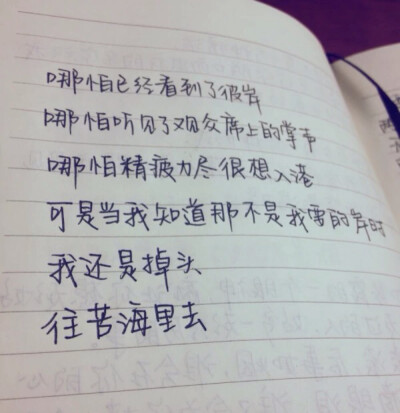 哪怕已经看到了彼岸
哪怕听见了观众席上的掌声
哪怕精疲力尽很想入港
可是当我知道那不是我要的岸时
我还是掉头
往苦海里去